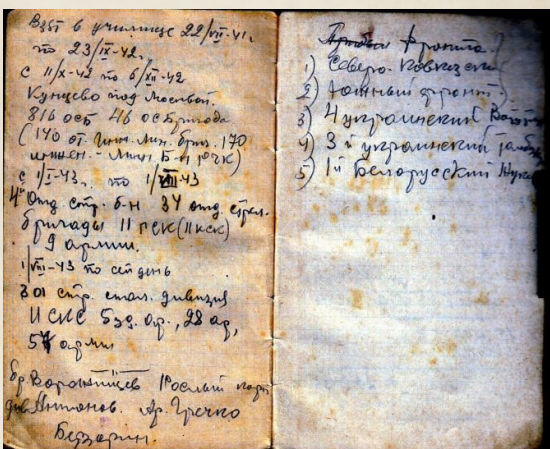 Взят в училище 22/VII-41.
по 23/IX-42.
с 11/X-42 по 6/XII-42
Кунцево под Москвой.
816 осб 46 осбригада
(140 от. Инж. Мин. бриг. 170
Мин. Б-н РГК)
с 1/I-43, по 1/VIII-43
4й Отд стр. б-н 34 отд стрел.
бригады 11 гск (11 кск)
9 армии.
1/VIII-43 по сей день
301 стр. стал. дивизия
II СКС 5 уд. ар., 28 ар,
57 арми
бр. Ворожищев Рослый
див. Антонов. Ар. Гречко
Берзарин.
фронта
1) Северо. Кавказски
2) Южный фронт
3) 4 украинский
4) 3й украинский
5) 1й Белорусский